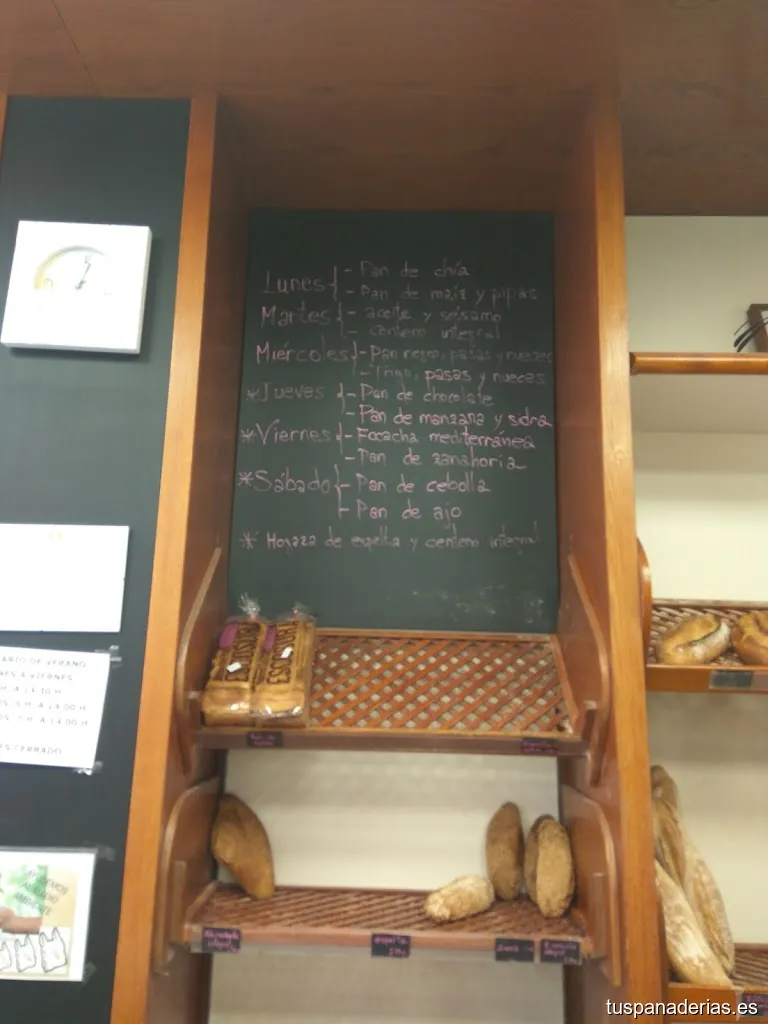 Lunes - Pan de chía
- Pan de maíz y pipas
Martes - aceite y sésamo
- centeno integral
Miércoles - Pan negro, pasas y nueces
- Trigo, pasas y nueces
*Jueves - Pan de chocolate
- Pan de manzana y sidra
*Viernes - Focacha mediterránea
- Pan de zanahoria
*Sábado - Pan de cebolla
- Pan de ajo
* Hogaza de espelta y centeno integral
ARIO DE VERANO
NES A VIERNES
H. A 14:30 H
H. A 14:00 H
H. A 14:00 H
ES CERRADO
espelta
tuspanaderias.es